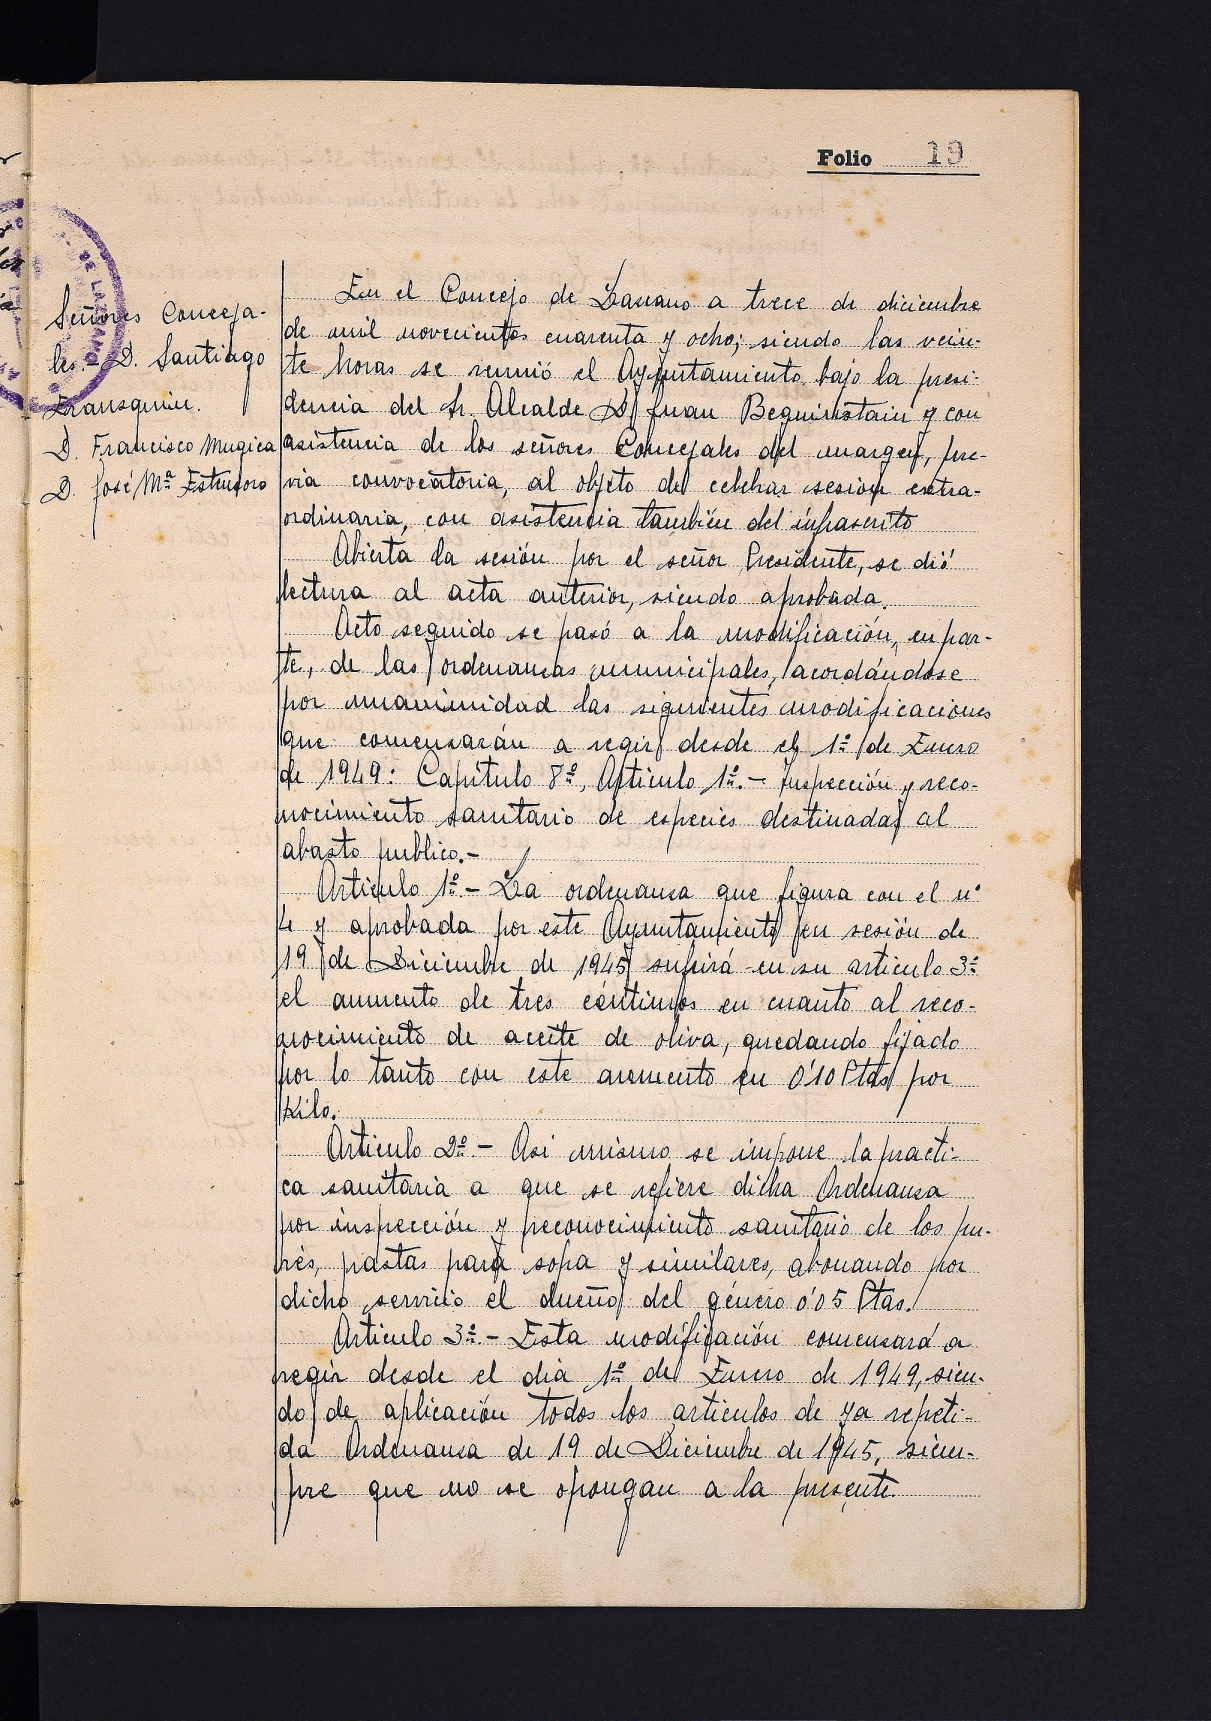 Folio 19
Señores Conceja-
les.- D. Santiago
Iransquin.
D. Francisco Mugica
D. José Mª Estensoro
En el Concejo de Lazcano a trece de diciembre
de mil novecientos cuarenta y ocho; siendo las vein-
te horas se reunió el Ayuntamiento bajo la presi-
dencia del Sr. Alcalde D. Juan Beguiristain y con
asistencia de los señores Concejales del margen, pre-
via convocatoria, al objeto de celebrar sesión extra-
ordinaria, con asistencia también del infrascrito
Abierta la sesión por el señor Presidente, se dió
lectura al acta anterior, siendo aprobada.
Acto seguido se pasó a la modificación, en par-
te, de las ordenanzas municipales, acordándose
por unanimidad las siguientes modificaciones
que comenzarán a regir desde el 1º de Enero
de 1949: Capítulo 8º, Articulo 1º.- Inspección y reco-
nocimiento sanitario de especies destinadas al
abasto publico.-
Articulo 1º.- La ordenanza que figura con el nº
4 y aprobada por este Ayuntamiento en sesión de
19 de Diciembre de 1945 sufrirá en su articulo 3º
el aumento de tres céntimos en cuanto al reco-
nocimiento de aceite de oliva, quedando fijado
por lo tanto con este aumento en 0'10 Ptas por
Kilo.
Articulo 2º.- Asi mismo se impone la practi-
ca sanitaria a que se refiere dicha Ordenanza
por inspección y reconocimiento sanitario de los pu-
rés, pastas para sopa y similares, abonando por
dicho servicio el dueño del género 0'05 Ptas.
Articulo 3º.- Esta modificación comenzará a
regir desde el dia 1º de Enero de 1949, sien-
do de aplicación todos los articulos de ya repeti-
da Ordenanza de 19 de Diciembre de 1945, siem-
pre que no se opongan a la presente.